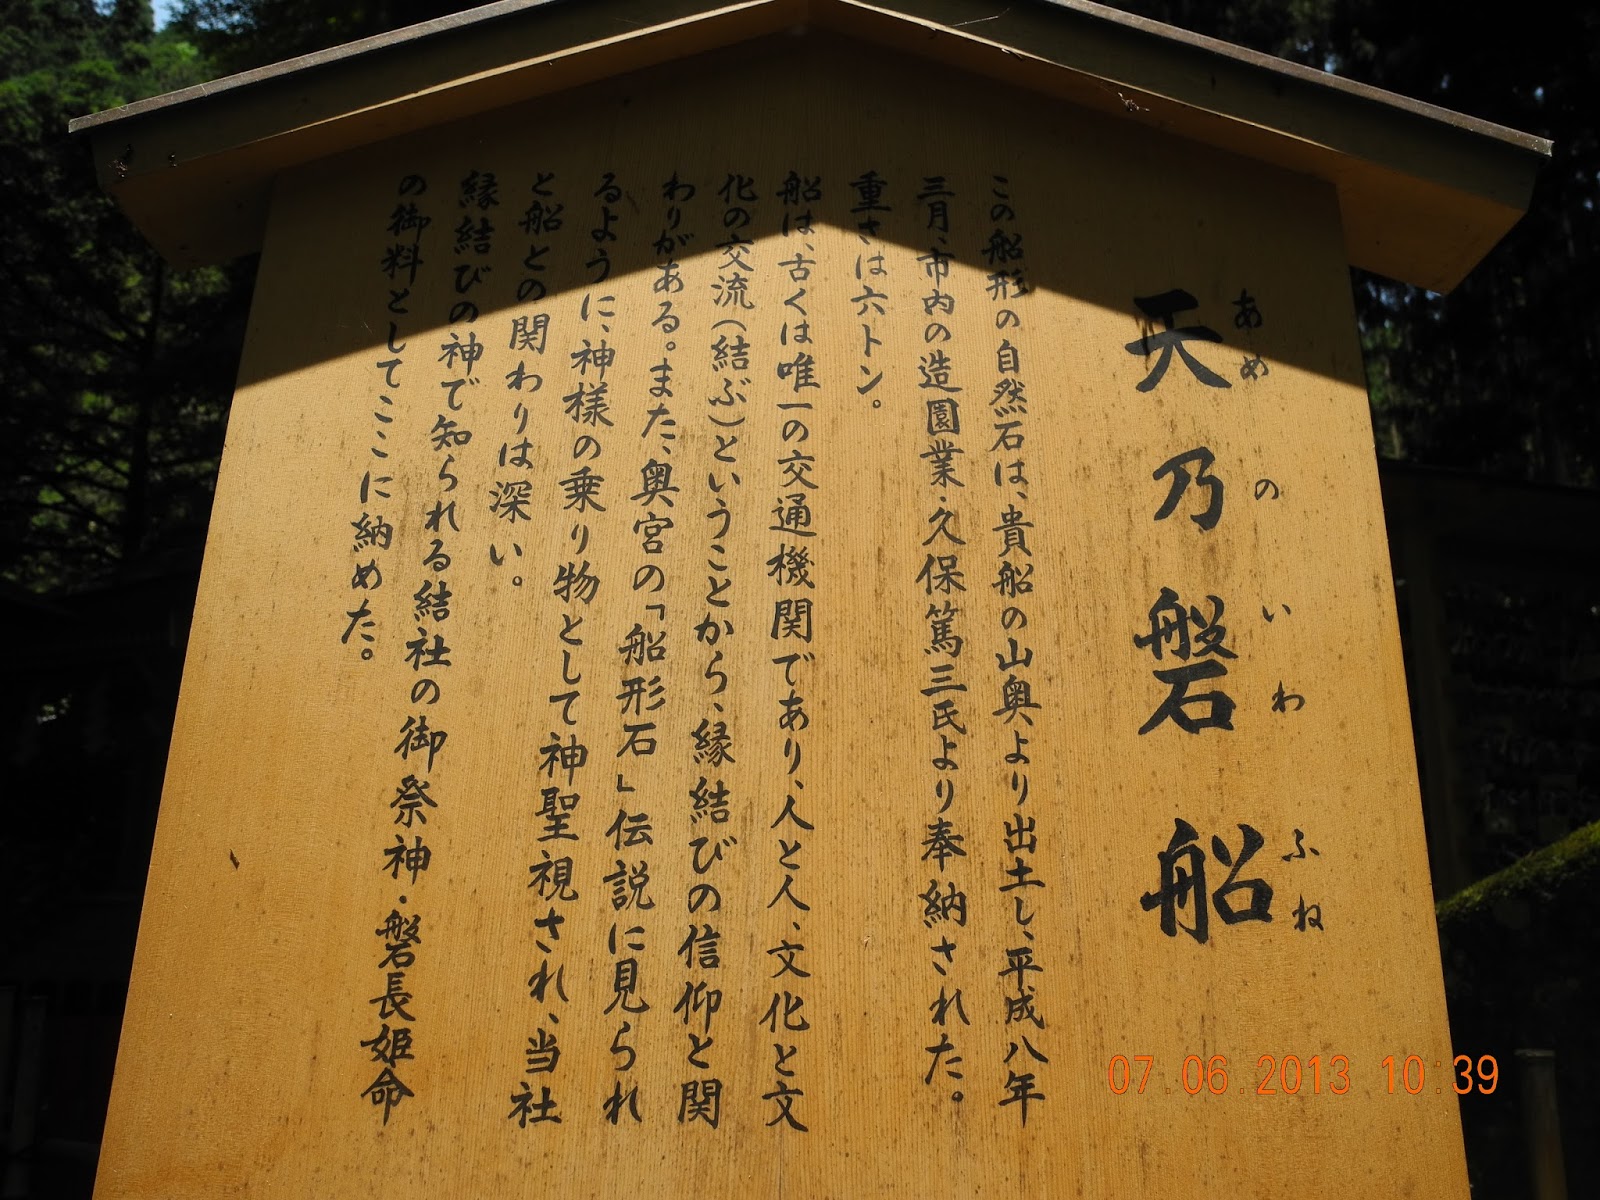 天乃磐船
あめのいわふね
この船形の自然石は、貴船の山奥より出土し、平成八年
三月、市内の造園業・久保篤三氏より奉納された。
重さは六トン。
船は、古くは唯一の交通機関であり、人と人、文化と文
化の交流（結ぶ）ということから、縁結びの信仰と関
わりがある。また、奥宮の「船形石」伝説に見られ
るように、神様の乗り物として神聖視され、当社
と船との関わりは深い。
縁結びの神で知られる結社の御祭神・磐長姫命
の御料としてここに納めた。
07.06.2013 10:39